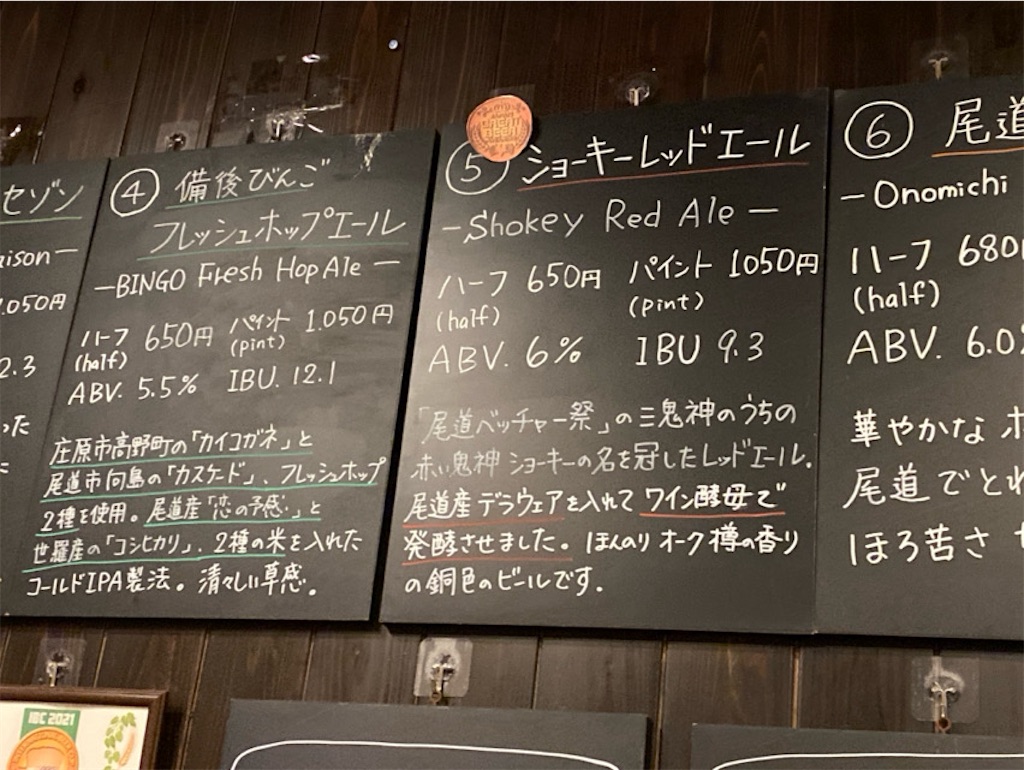 セゾン
ison—
1.050円
2.3
った
に
④ 備後びんご
フレッシュホップエール
—BINGO Fresh Hop Ale—
ハーフ 650円 パイント 1.050円
(half) (pint)
ABV. 5.5% IBU. 12.1
庄原市高野町の「カイコガネ」と
尾道市向島の「カスケード」、フレッシュホップ
2種を使用。尾道産「恋の予感」と
世羅産の「コシヒカリ」、2種の米を入れた
コールドIPA製法。清々しい草感。
⑤ ショーキーレッドエール
—Shokey Red Ale—
ハーフ 650円 パイント 1050円
(half) (pint)
ABV. 6% IBU 9.3
「尾道ベッチャー祭」の三鬼神のうちの
赤い鬼神 ショーキーの名を冠したレッドエール.
尾道産デラウェアを入れて ワイン酵母で
発酵させました。ほんのり オーク樽の香り
の銅色のビールです.
⑥ 尾道
—Onomichi
ハーフ 680
(half)
ABV. 6.0
華やかな ホ
尾道でとれ
ほろ苦さ
IBC 2021